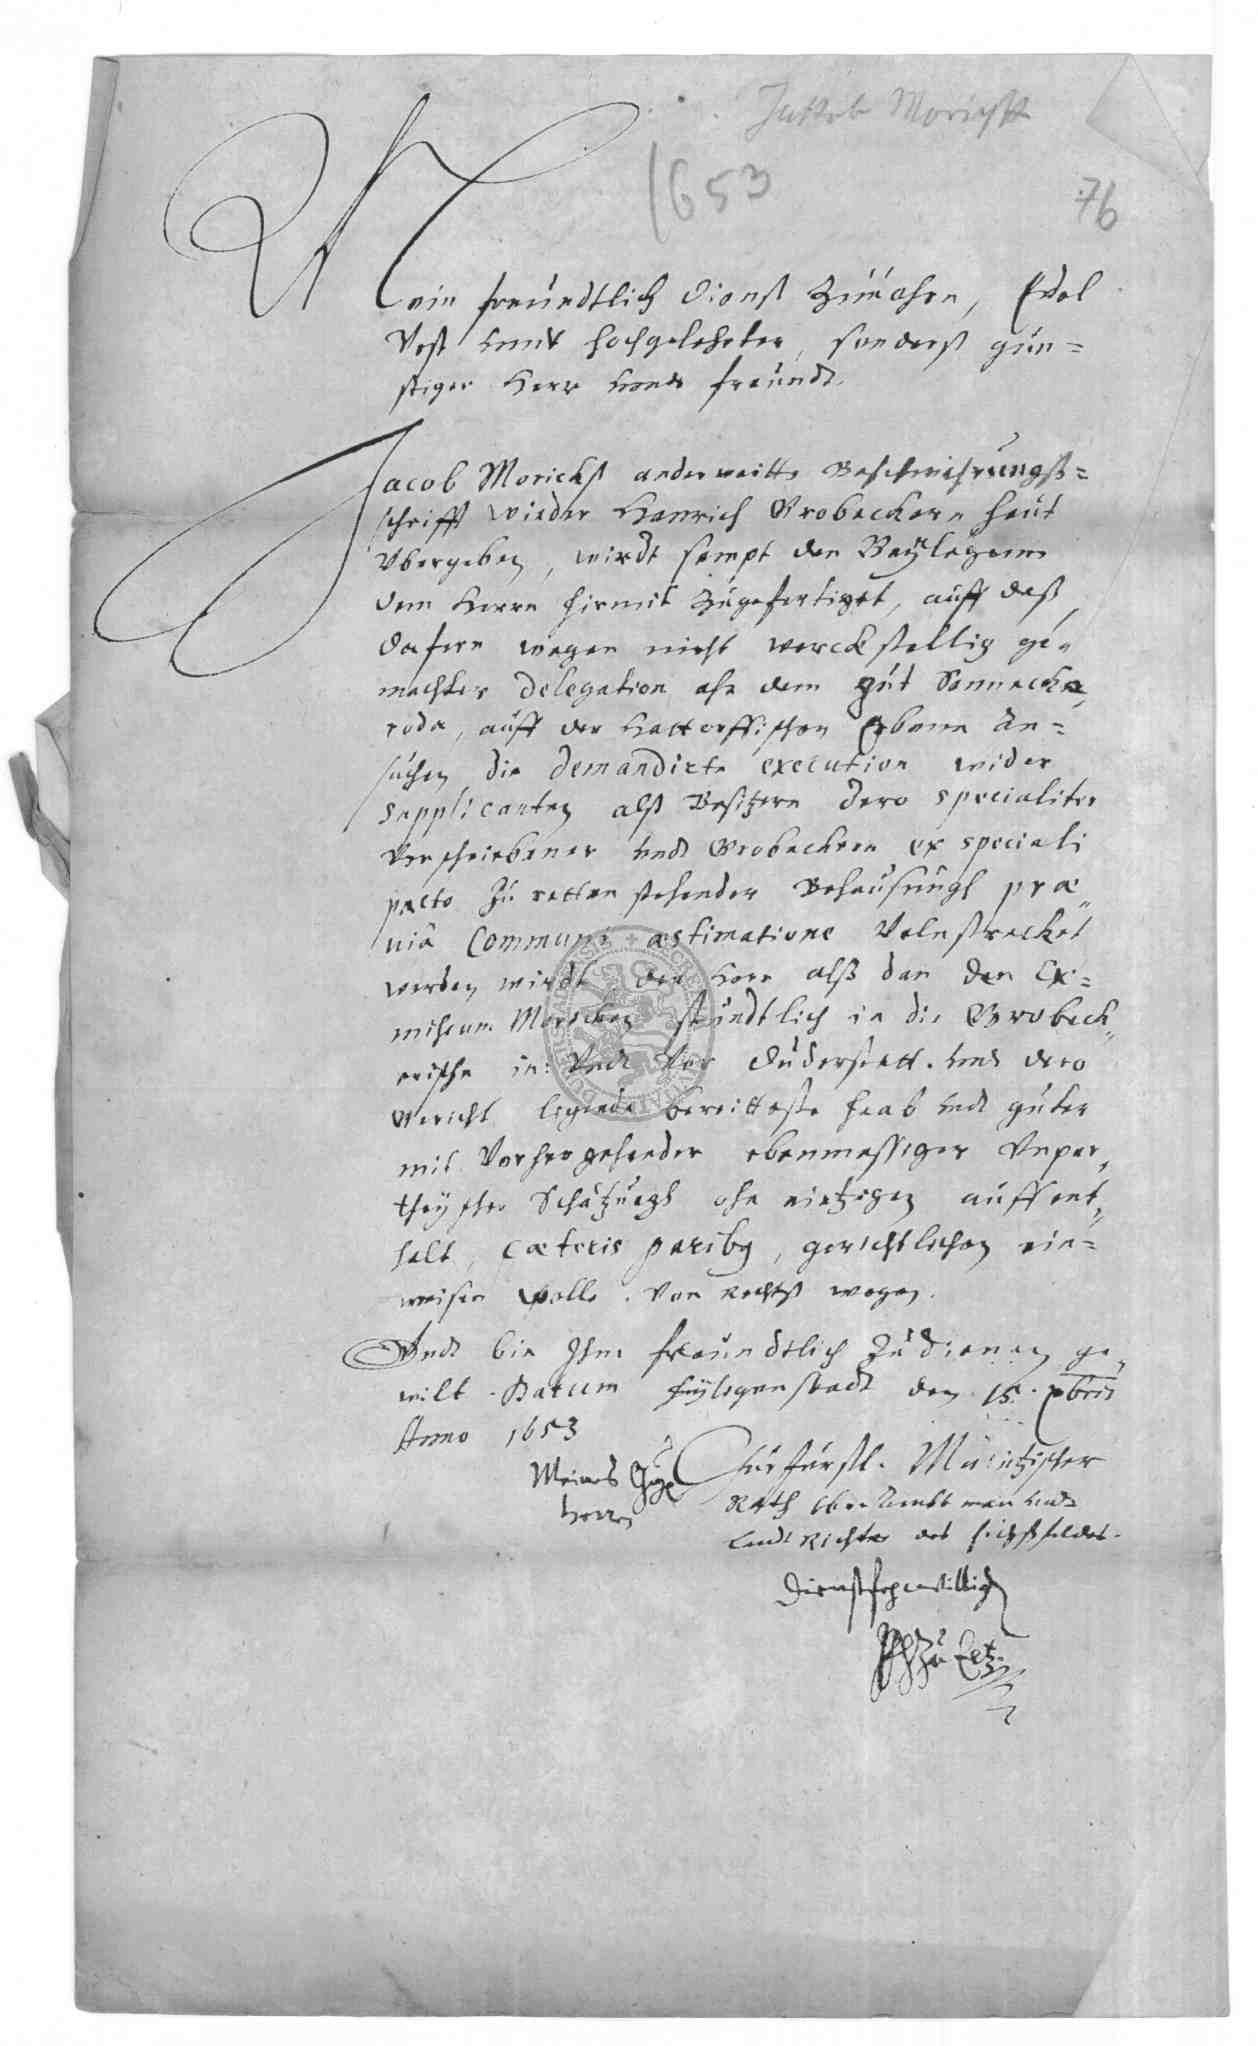 Jakob Morichß
1653
76
Mein freundtlich dienst zuuohrn, Edel
Vest undt hochgelehrter, sonderß gün-
stiger Herr undt freundt.
Jacob Morichß anderweitte Beschwehrungß-
schrifft wieder Henrich Brobeckern heut
Vbergeben, wirdt sampt den Beÿlagenn
dem Herrn hirmit zugefertiget, auff daß
dafern wegen nicht werckstellig ge-
machter delegation ahn dem gut
roda, auff der Hattorffischen Erbenn An-
suchen die demandirte execution wider
Supplicanten alß Besitzern dero specialiter
Verschriebener undt Brobeckern ex speciali
pacto zu retten stehender Behausungh præ
uiâ Communi æstimatione Volnstrecket
werden wirdt der Herr alß dan den Ex-
missum Moricken stundtlich in die Brobeck-
erische in: Undt Vor Duderstatt. undt dero
Gericht ligende bereitteste haab undt güter
mit Vorhergehender ebenmessiger Vnpar-
theyscher Schätzungh ohn eintzigen auffent-
halt, cæteris paribus, gerichtlichen ein-
weisen wolle. Von Rechtß wegen.
Undt bin Ihm freundtlich zu dienen ge-
wilt. Datum Heyligenstadt den 15. Xbris
Anno 1653
Meines
Herrn
Churfürstl. Maintzischer
Rath Oberambtman undt
Landt Richter des Eichßfeldes.
Dienstfreywilliger
zu Eltz